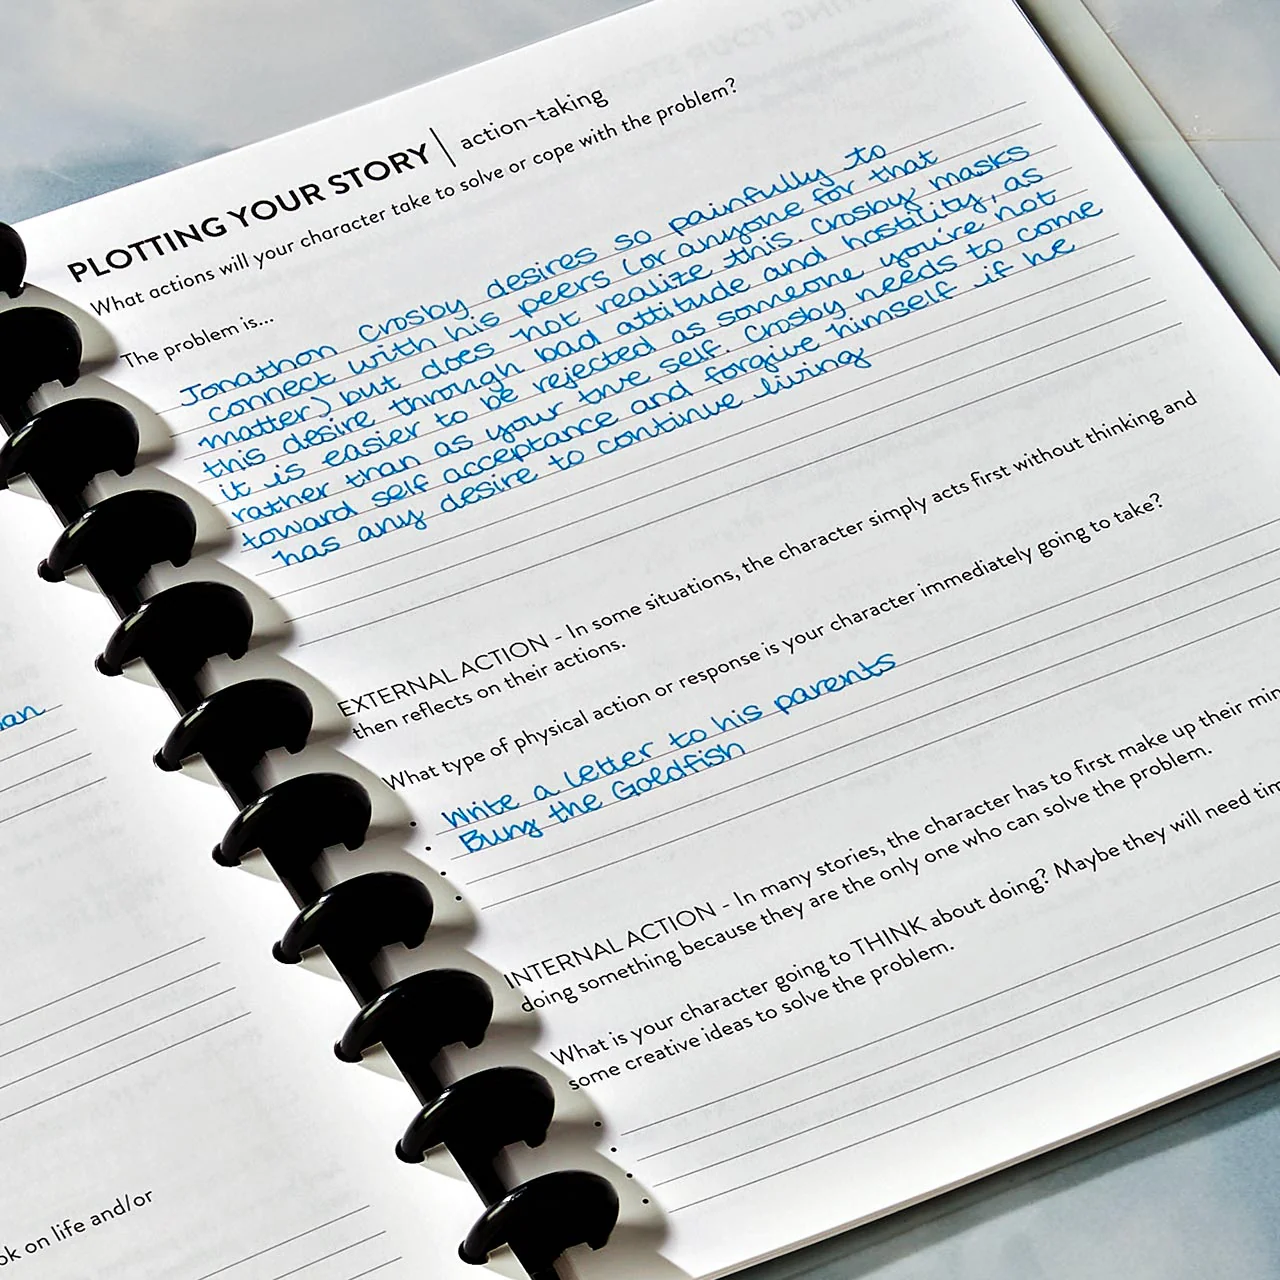 PLOTTING YOUR STORY | action-taking
What actions will your character take to solve or cope with the problem?
The problem is...
Jonathon Crosby desires so painfully to
connect with his peers (or anyone for that
matter) but does not realize this. Crosby masks
this desire through bad attitude and hostility, as
it is easier to be rejected as someone you're not
rather than as your true self. Crosby needs to come
toward self acceptance and forgive himself if he
has any desire to continue living
EXTERNAL ACTION - In some situations, the character simply acts first without thinking and
then reflects on their actions.
What type of physical action or response is your character immediately going to take?
• Write a letter to his parents
• Bury the Goldfish
•
•
INTERNAL ACTION - In many stories, the character has to first make up their min
doing something because they are the only one who can solve the problem.
What is your character going to THINK about doing? Maybe they will need tim
some creative ideas to solve the problem.
an
ok on life and/or